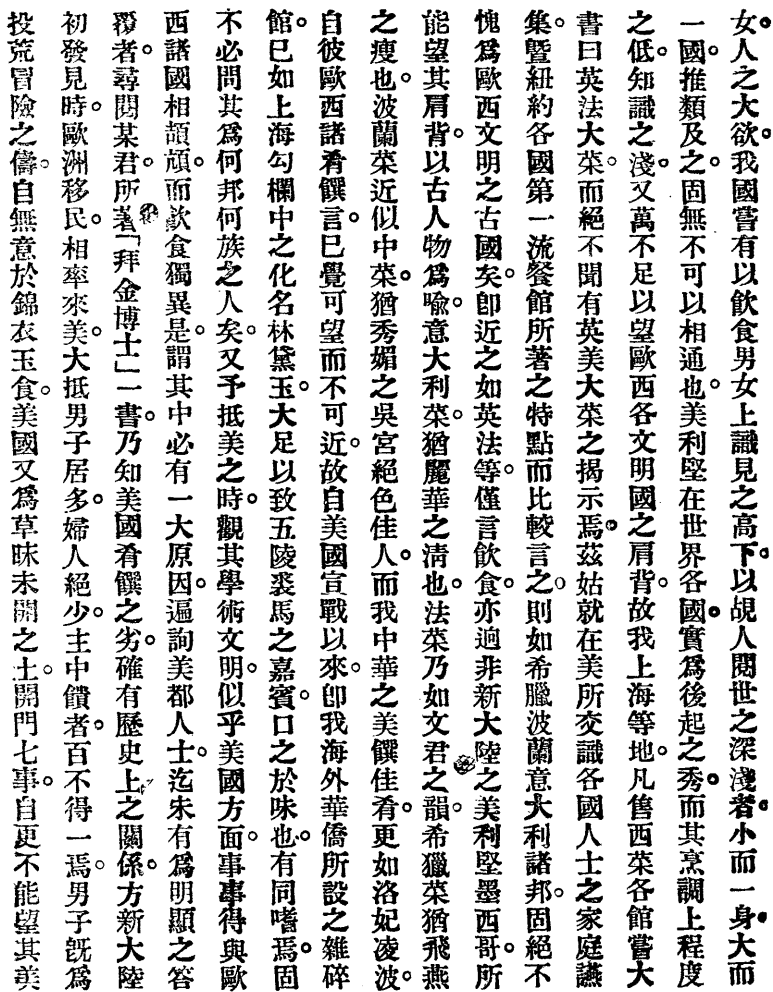 女人之大欲。我國嘗有以飲食男女上識見之高下。以覘人閱世之深淺者。小而一身。大而
一國。推類及之。固無不可以相通也。美利堅在世界各國。實爲後起之秀。而其烹調上程度
之低。知識之淺。又萬不足以望歐西各文明國之肩背。故我上海等地。凡售西菜各館。嘗大
書曰英法大菜。而絕不聞有英美大菜之揭示焉。茲姑就在美所交識各國人士之家庭讌
集。曁紐約各國第一流餐館所著之特點而比較言之。則如希臘波蘭意大利諸邦。固絕不
愧爲歐西文明之古國矣。卽近之如英法等。僅言飲食。亦逈非新大陸之美利堅墨西哥。所
能望其肩背。以古人物爲喩。意大利菜。猶麗華之淸也。法菜乃如文君之韻。希獵菜猶飛燕
之瘦也。波蘭菜近似中菜。猶秀媚之吳宮絕色佳人。而我中華之美饌佳肴。更如洛妃凌波。
自彼歐西諸肴饌言。已覺可望而不可近。故自美國宣戰以來。卽我海外華僑所設之雜碎
館。已如上海勾欄中之化名林黛玉。大足以致五陵裘馬之嘉賓。口之於味也。有同嗜焉。固
不必問其爲何邦何族之人矣。又予抵美之時。觀其學術文明。似乎美國方面。事事得與歐
西諸國相頡頏。而飲食獨異。是謂其中必有一大原因。遍詢美都人士。迄未有爲明顯之答
覆者。尋閱某君。所著「拜金博士」一書。乃知美國肴饌之劣。確有歷史上之關係。方新大陸
初發見時。歐洲移民。相率來美。大抵男子居多。婦人絕少。主中饋者。百不得一焉。男子旣爲
投荒冒險之儔。自無意於錦衣玉食。美國又爲草昧未開之土。開門七事。自更不能望其美